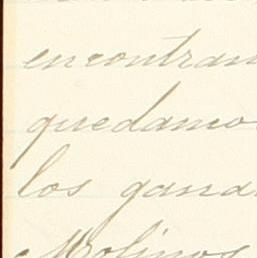 encontram
quedamo
los gana
Molinos